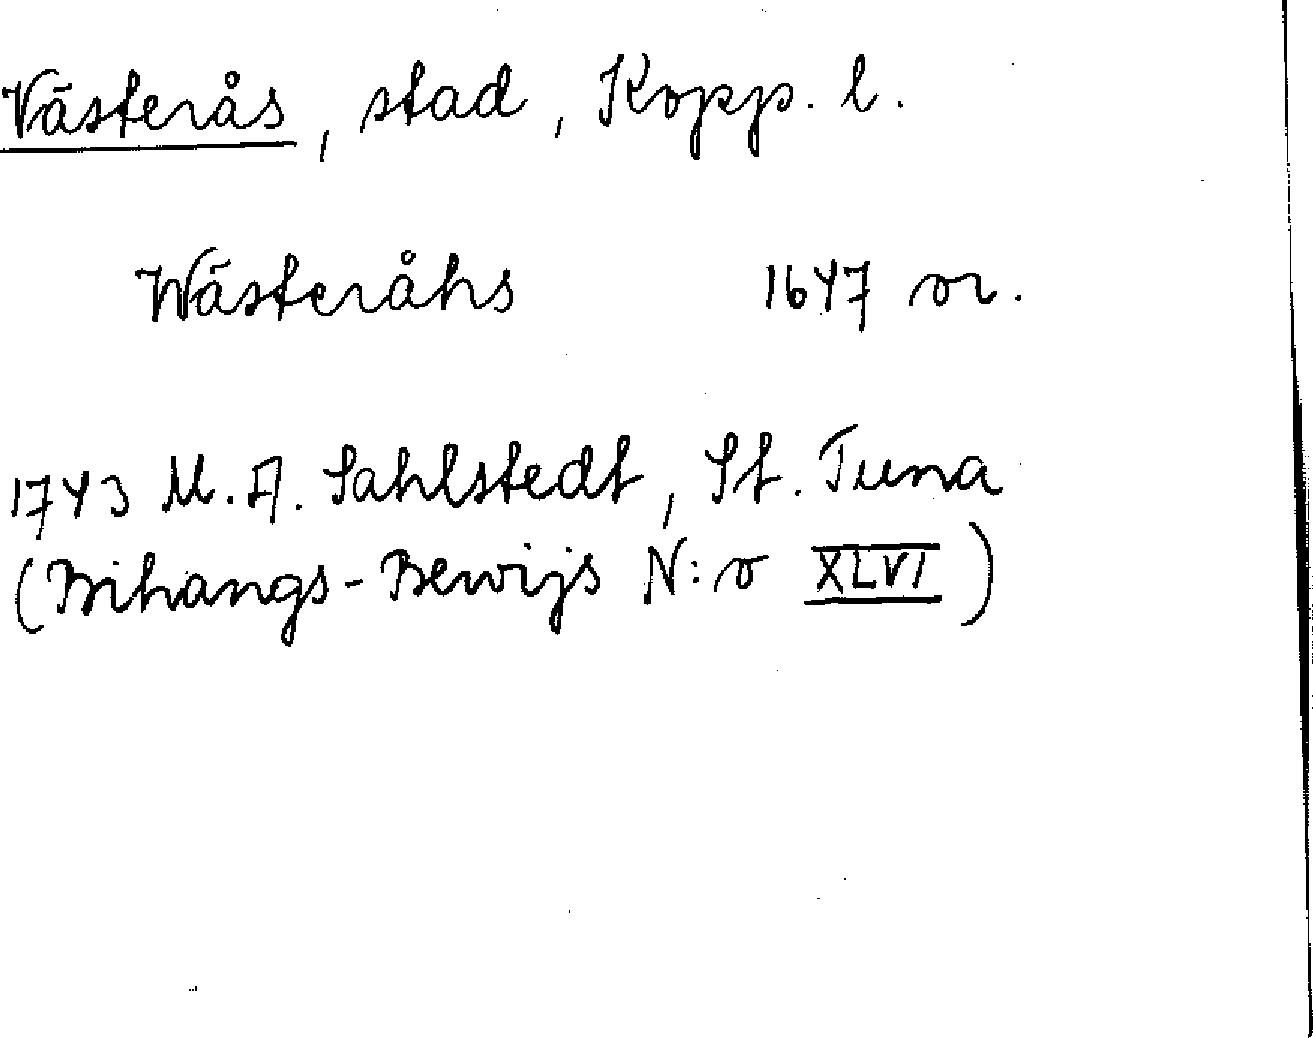 Västerås, stad, Kopp. l.
Wästeråhs 1647 or.
1743 M. A. Sahlstedt, St. Tuna
(Bihangs-Bewijs N:o XLVI)